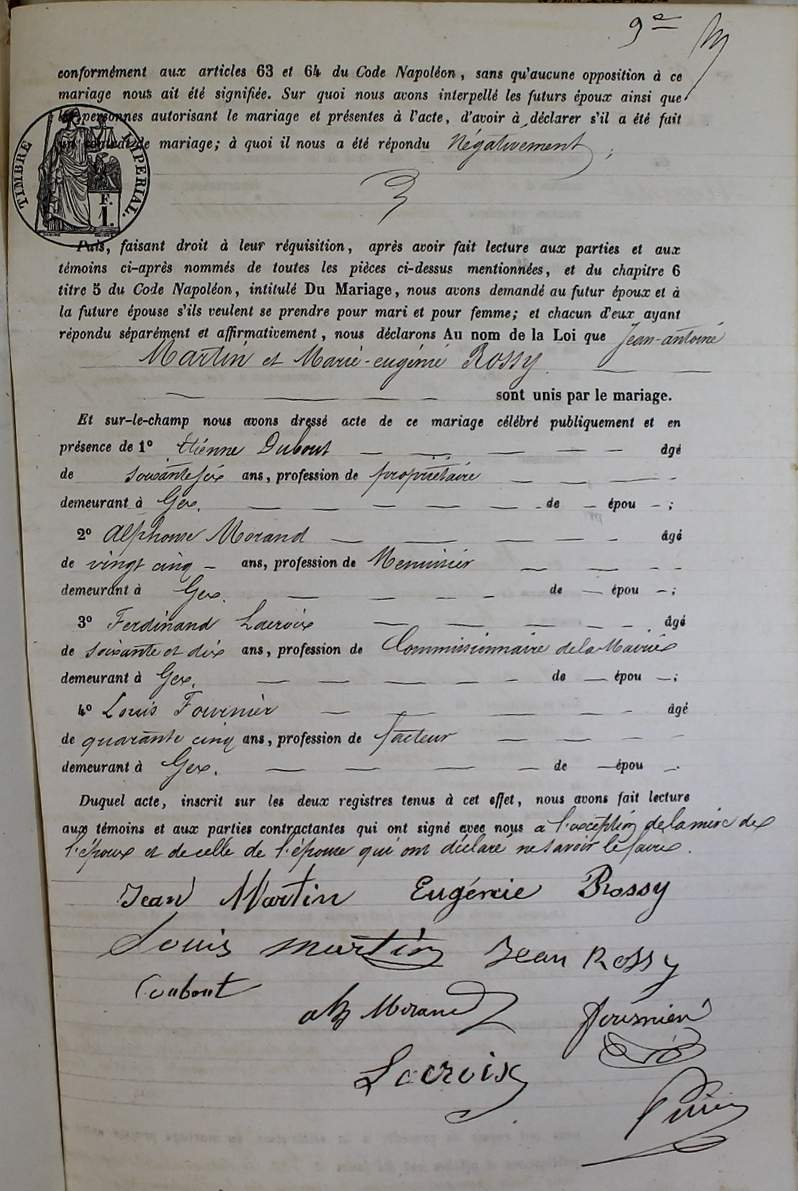 9e
conformément aux articles 63 et 64 du Code Napoléon, sans qu'aucune opposition à ce
mariage nous ait été signifiée. Sur quoi nous avons interpellé les futurs époux ainsi que
les personnes autorisant le mariage et présentes à l'acte, d'avoir à déclarer s'il a été fait
un contrat de mariage; à quoi il nous a été répondu Négativement;
TIMBRE IMPERIAL.
F.
1.
Puis, faisant droit à leur réquisition, après avoir fait lecture aux parties et aux
témoins ci-après nommés de toutes les pièces ci-dessus mentionnées, et du chapitre 6
titre 5 du Code Napoléon, intitulé Du Mariage, nous avons demandé au futur époux et à
la future épouse s'ils veulent se prendre pour mari et pour femme; et chacun d'eux ayant
répondu séparément et affirmativement, nous déclarons Au nom de la Loi que Jean-antoine
Martin et Marie-eugénie Rossy.
sont unis par le mariage.
Et sur-le-champ nous avons dressé acte de ce mariage célébré publiquement et en
présence de 1° Etienne Dubout — — — — — âgé
de soixante six ans, profession de propriétaire — — — —
demeurant à Gex. — — — — — de — épou — ;
2° Alphonse Morand — — — — — âgé
de vingt cinq — ans, profession de Menuisier — — — —
demeurant à Gex. — — — — de — épou — ;
3° Ferdinand Lacroix — — — — — âgé
de soixante et dix ans, profession de Commissionnaire de la Mairie
demeurant à Gex. — — — — — de — épou — ;
4° Louis Fournier — — — — — âgé
de quarante cinq ans, profession de facteur — — — —
demeurant à Gex. — — — — — de — épou — .
Duquel acte, inscrit sur les deux registres tenus à cet effet, nous avons fait lecture
aux témoins et aux parties contractantes qui ont signé avec nous a l'exception de la mère de
l'époux et de celle de l'épouse qui ont déclaré ne savoir le faire.
Jean Martin Eugénie Rossy
Louis Martin Jean Rossy
Morand Fournier
Lacroix